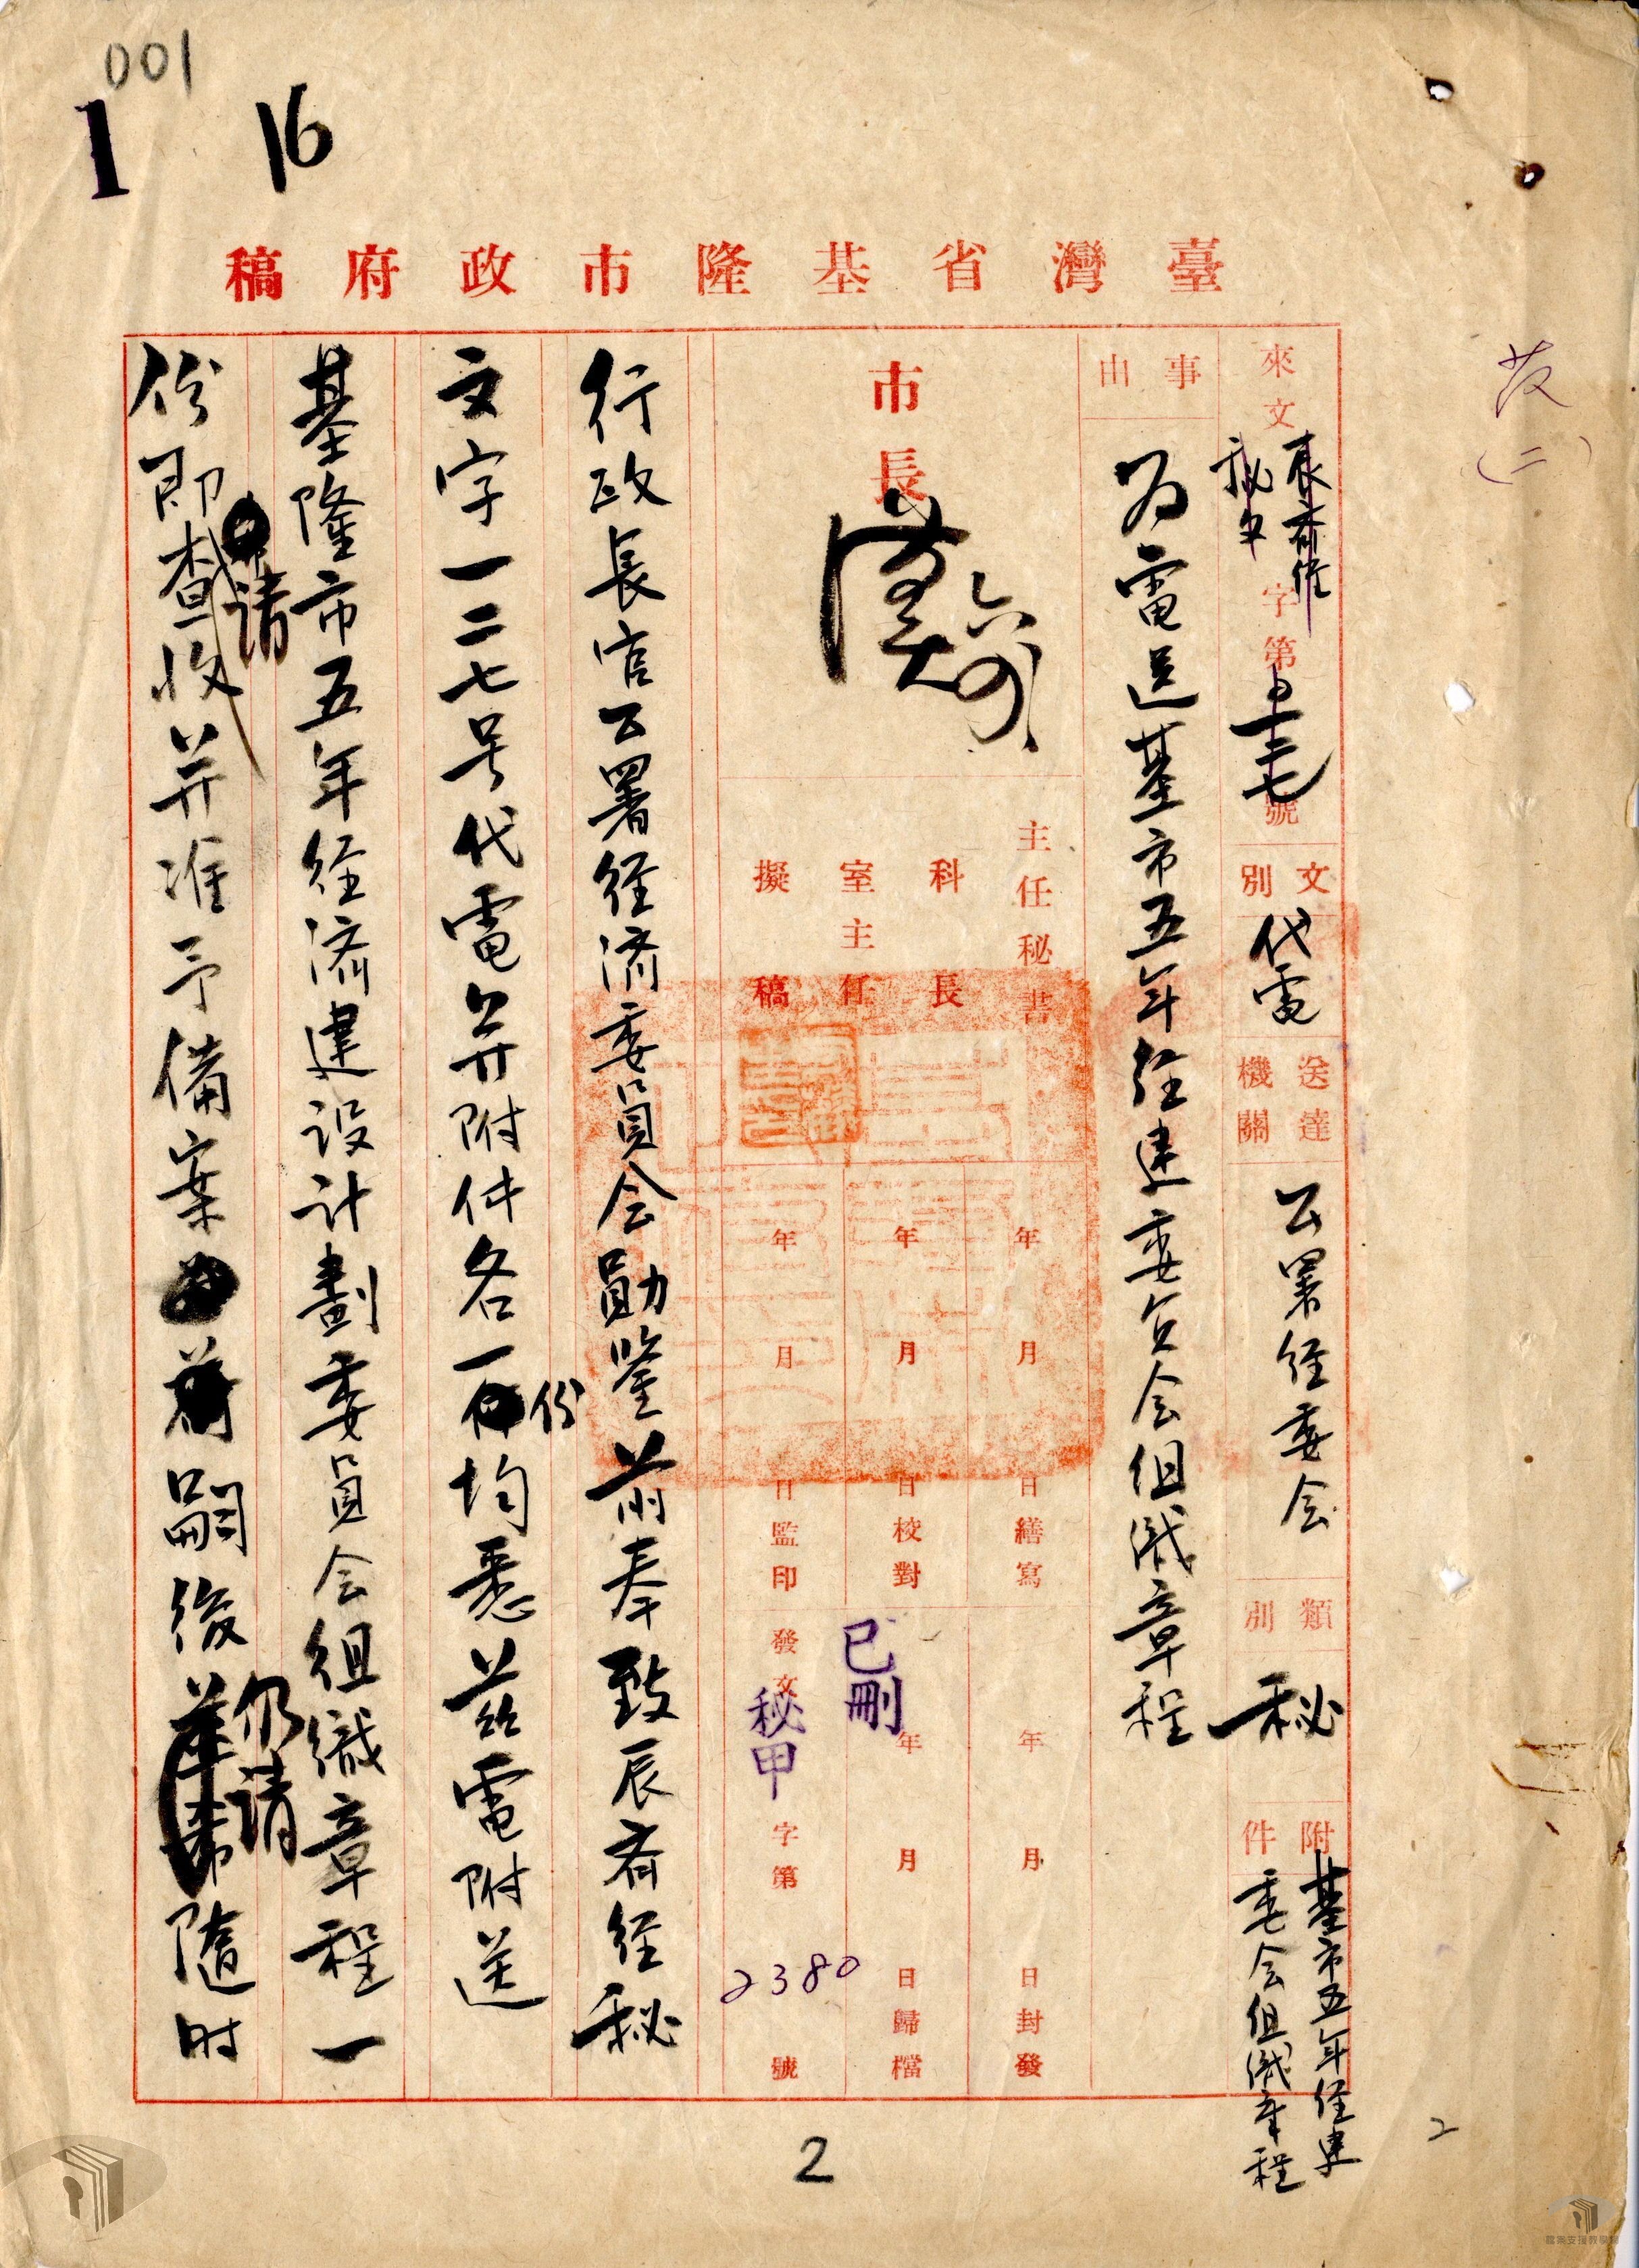 001
1 16
臺灣省基隆市政府稿
發(二)
來文 辰齊経秘文字第一二七號
文別 代電
送達機關 公署経委会
類別 秘
附件 基市五年経建委会組織章程
事由 為電送基市五年経建委員会組織章程
市長
主任秘書
科長
室主任
擬稿
年月日繕寫
年月日校對
年月日監印
年月日封發
年月日歸檔
已刪
發文秘甲字第2380號
行政長官公署経済委員会勛鑒前奉致辰齊経秘
文字一二七号代電并附件各一份均悉茲電附送
基隆市五年経済建設計劃委員会組織章程一
份即請查收并准予備案嗣後仍請隨时
2
2
檔案支援教學網